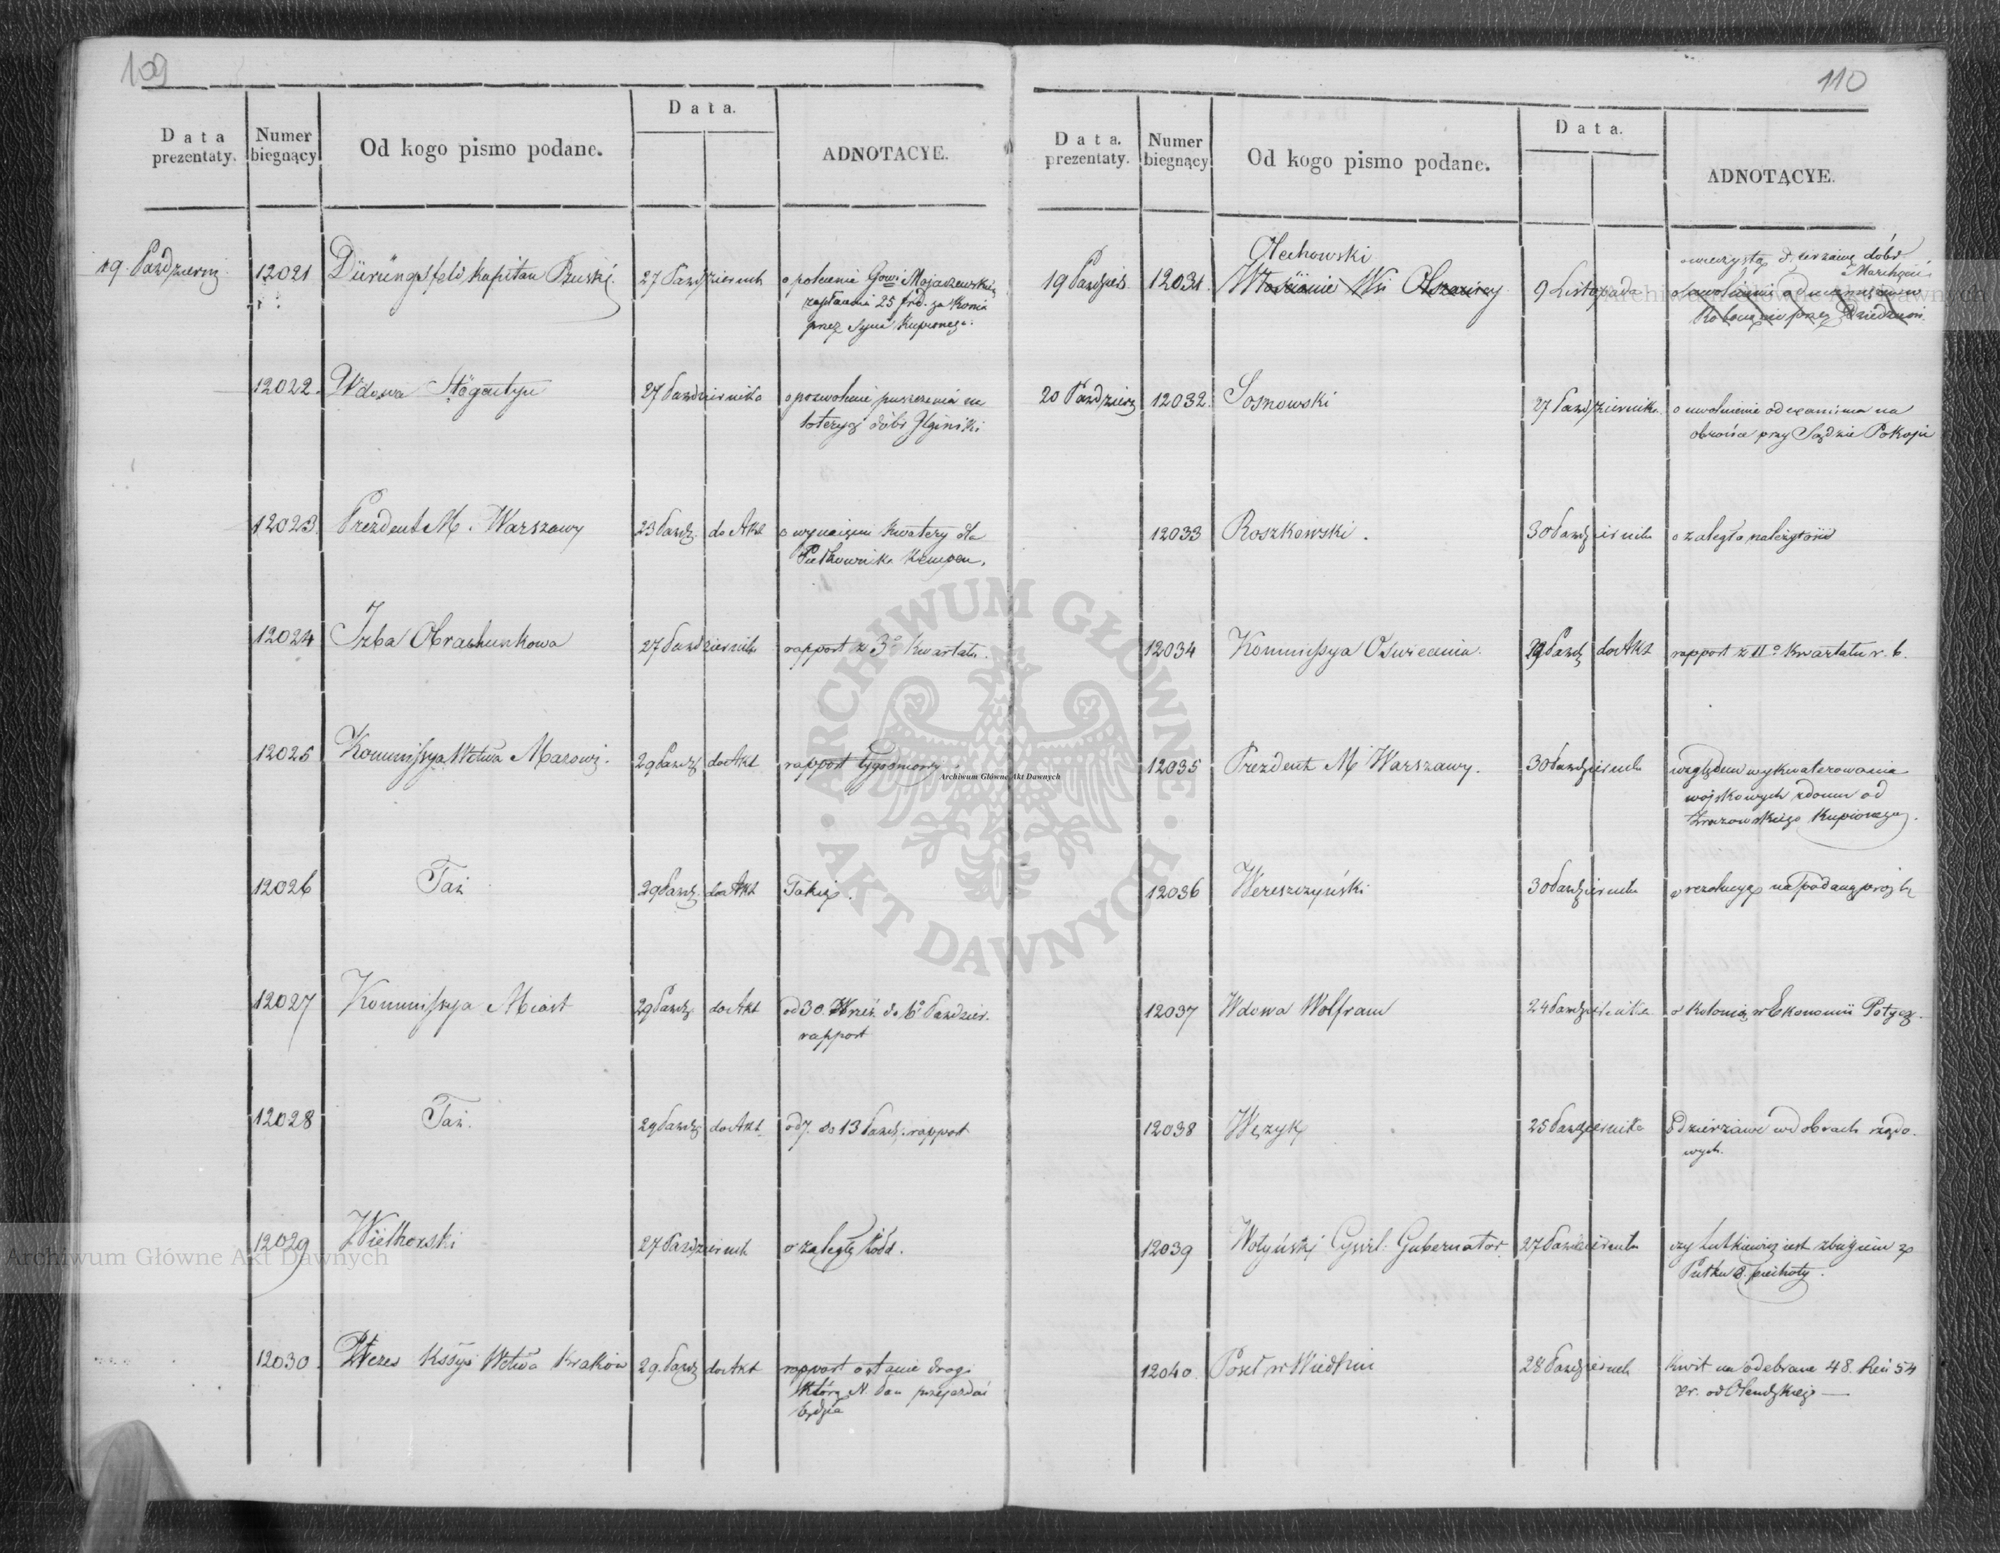 109
Data prezentaty.
Numer biegnący
Od kogo pismo podane.
Data.
ADNOTACYE.
19. Październ.
12021
Dürüngsfeld Kapitan Pruski.
27 Październik
o polecenie
zapłacenia 25 frd. za Konia
przez Syna Kupionego.
12022.
Wdowa
27 Października
o pozwolenie puszczenia na
loteryą dóbr
12023.
Prezdent M. Warszawy
23 Paźdz.
do Akt
o wynajęciu Kwatery dla
Półkownika Kempen.
12024
Izba Obrachunkowa
27 Październik
rapport z 3º Kwartału.
12025
Kommissya Wttwa Mazowi.
29 Paźdz
do Akt
rapport Tygodniowy
12026
Taż
29 Paźdz.
do Akt
Takiż.
12027
Kommissya Miast
29 Paźdz
do Akt
od 30. Wrześ. do 6º Paździer.
rapport
12028
Taż.
29 Paźdz
do Akt.
od 7. do 13 Paźdz. rapport
12029
Wielhorski
27 Październik
o zaległy żołd.
12030.
Prezes Kssyi Wttwa Kraków
29. Paźdz
do Akt
rapport o stanie drogi
którą N. Pan przejeżdżać
będzie
110
Data. prezentaty.
Numer biegnący
Od kogo pismo podane.
Data.
ADNOTACYE.
19 Paździe
12031.
Olechowski
Włościanie Wsi
9 Listopada
o wieczystą dzierżawę dóbr
20 Paździer
12032.
Sosnowski
27 Października
o uwolnienie od examinu na
obrońcę przy Sądzie Pokoju
12033
Roszkowski.
30 Październik
o zaległą należytość
12034
Kommissya Oświecenia.
29 Paźdz
do Akt
rapport z IIº Kwartału r. b.
12035
Prezdent M Warszawy.
30 Październik
względem wykwaterowania
wojskowych z domu od
Kupionego.
12036
Wereszczyński
30 Październik
o rezolucyą na podaną prożbę
12037
Wdowa Wolfram
24 Października
o Kolonią w Ekonomii Potycz.
12038
Wężyk
25 Października
o dzierżawę w dobrach rządo-
wych.
12039
Wołyński Cywil. Gubernator.
27 Październik
czy Lutkiewicz jest zbiegiem z
Pułku 8. piechoty.
12040.
Poseł w Wiedniu
28 Październik
Kwit na odebrane 48. Reń 54
xr. od Olendzkiego —
Archiwum Główne Akt Dawnych
Archiwum Główne Akt Dawnych
Archiwum Główne Akt Dawnych
ARCHIWUM GŁÓWNE
AKT DAWNYCH